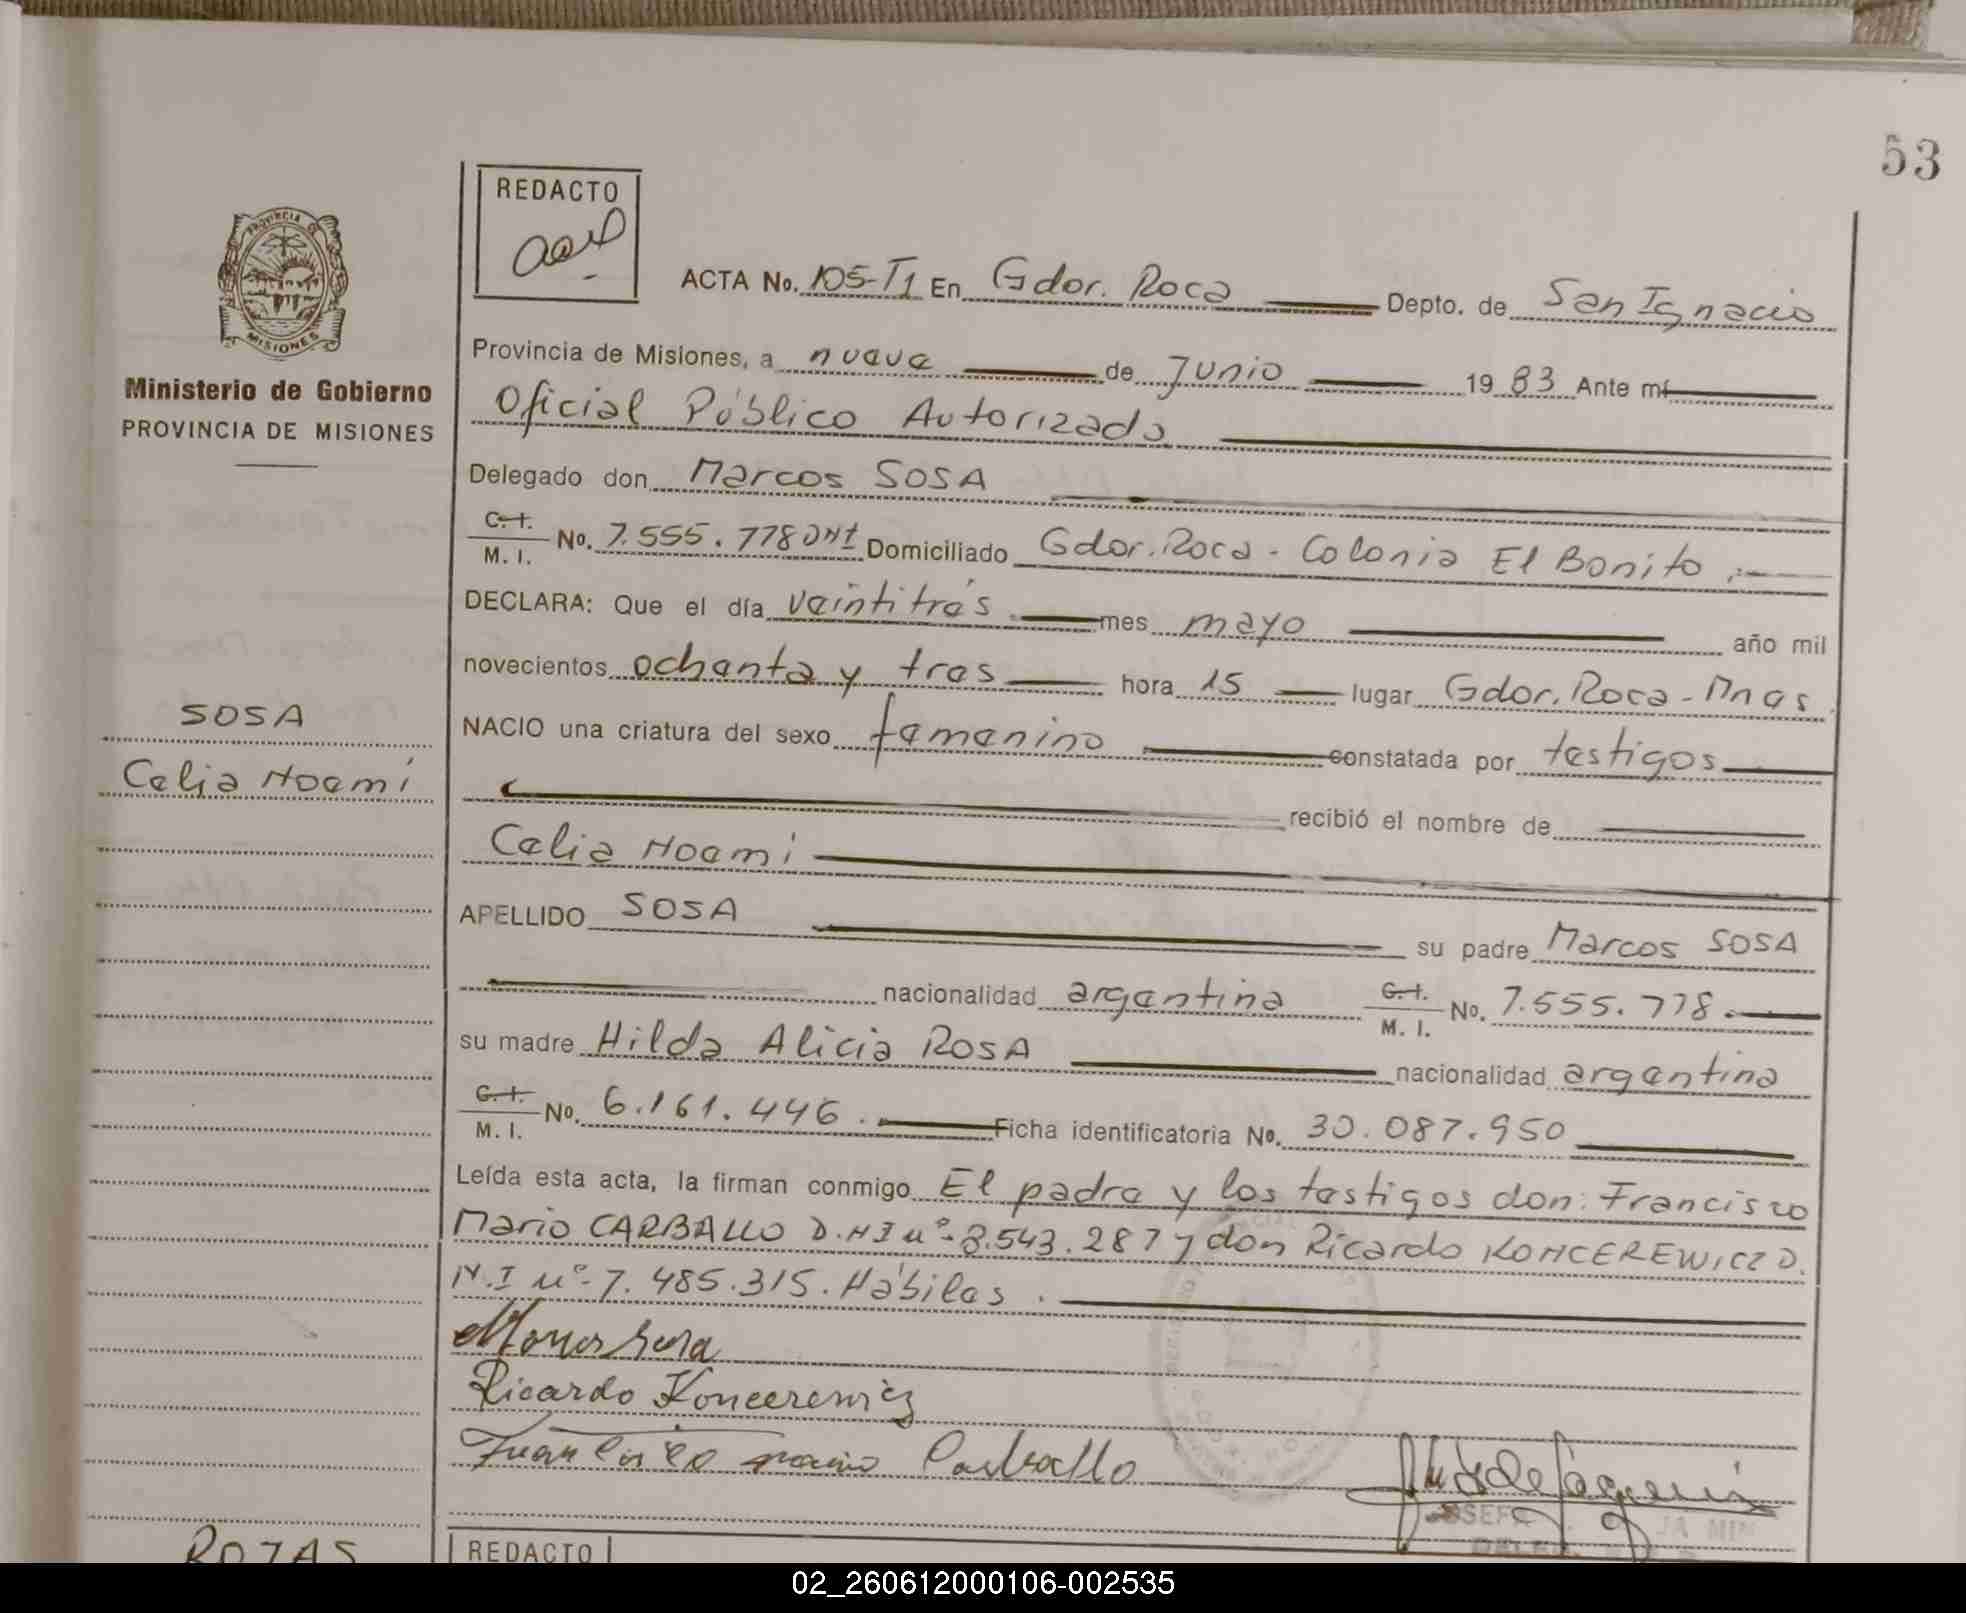 53
REDACTO
PROVINCIA DE
MISIONES
Ministerio de Gobierno
PROVINCIA DE MISIONES
ACTA No. 105-T1 En Gdor. Roca Depto. de San Ignacio
Provincia de Misiones, a nueve de Junio 1983 Ante mí
Oficial Público Autorizado
Delegado don Marcos SOSA
C.I. M.I. No. 7.555.778 DNI Domiciliado Gdor. Roca - Colonia El Bonito
DECLARA: Que el día veintitrés mes mayo año mil
novecientos ochenta y tres hora 15 lugar Gdor. Roca - Mnes
NACIO una criatura del sexo femenino constatada por testigos
recibió el nombre de
Celia Noemi
SOSA
Celia Noemi
APELLIDO SOSA su padre Marcos SOSA
nacionalidad argentina C.I. M.I. No. 7.555.778.
su madre Hilda Alicia ROSA nacionalidad argentina
C.I. M.I. No. 6.161.446. Ficha identificatoria No. 30.087.950
Leída esta acta, la firman conmigo El padre y los testigos don: Francisco
Mario CARBALLO D.N.I nº- 8.543.287 y don Ricardo KONCEREWICZ D.
N.I nº- 7.485.315. Hábiles.
Marcos Sosa
Ricardo Koncerewicz
Francisco Mario Carballo
ROJAS
REDACTO
02_260612000106-002535